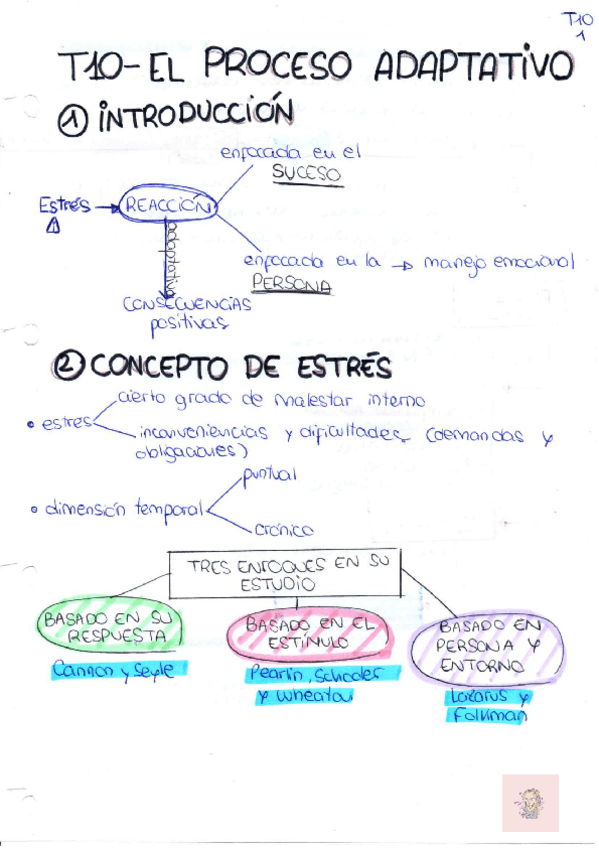 T10
1
T10-EL PROCESO ADAPTATIVO
① INTRODUCCIÓN
enfocada en el
SUCESO
Estrés → REACCIÓN
adaptativa
enfocada en la → manejo emocional
PERSONA
CONSECUENCIAS
positivas
② CONCEPTO DE ESTRÉS
cierto grado de malestar interno
• estres
inconveniencias y dificultades (demandas y
obligaciones)
puntual
• dimensión temporal
crónico
TRES ENFOQUES EN SU
ESTUDIO
BASADO EN SU
RESPUESTA
BASADO EN EL
ESTÍNULO
BASADO EN
PERSONA Y
ENTORNO
Cannon y Seyle
Pearlin, Schooler
y Wheaton
Lazarus y
Folkman